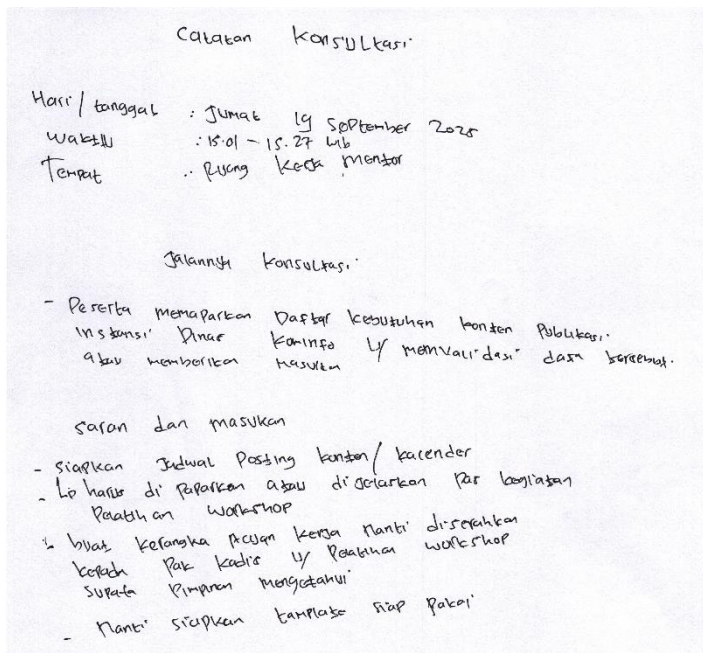 Catatan Konsultasi
Hari/tanggal : Jumat 19 September 2025
Waktu : 15.01 – 15.27 wib
Tempat : Ruang Kerja Mentor
Jalannya Konsultasi
- Peserta memaparkan Daftar kebutuhan konten Publikasi
instansi Dinas Kominfo u/ memvalidasi data tersebut.
atau memberikan masukan
saran dan masukan
- siapkan Jadwal Posting konten/ kalender
- harus di paparkan atau dijelaskan pas kegiatan
Pelatihan workshop
- buat kerangka Acuan Kerja nanti diserahkan
kepada Pak Kadis u/ Pelatihan workshop
supaya Pimpinan mengetahui
- Nanti siapkan tamplate siap Pakai